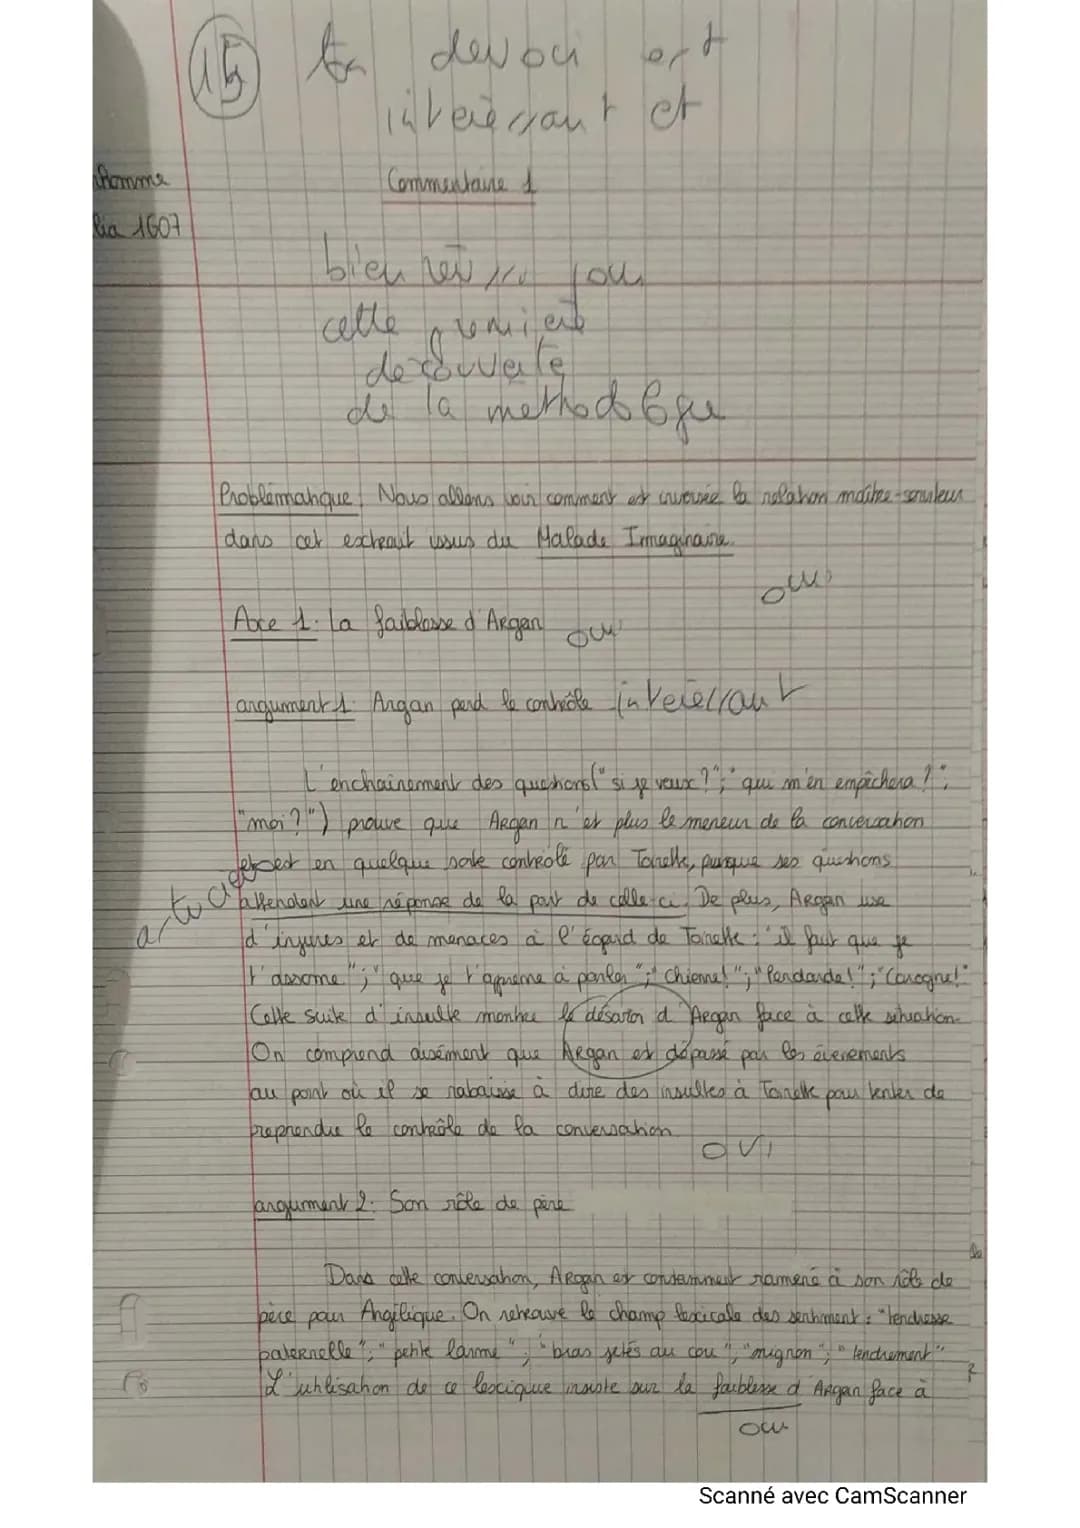 15 Ton devoir est
intéressant et
homme Commentaire 1
lia 1607
bien réussi pour
cette première
découverte
de la méthodologie
Problématique Nous allons voir comment est inversée la relation maître-serviteur
dans cet extrait issus du Malade Imaginaire.
oui
Axe 1: La faiblesse d'Argan oui
argument 1: Argan perd le contrôle intéressant
L'enchainement des questions ("si je veux ?"; "qui m'en empêchera ?";
"moi ?") prouve que Argan n'est plus le meneur de la conversation
est en quelque sorte contrôlé par Toinette, puisque ses questions
attendent une réponse de la part de celle ci. De plus, Argan use
d'injures et de menaces à l'égard de Toinette : "il faut que je
t'assome"; "que je t'apprenne à parler"; "Chienne!"; "Pendarde!"; "Carogne!"
Cette suite d'insulte montre le désaroi d'Argan face à cette situation.
On comprend aisément que Argan est dépassé par les évenements
au point où il se rabaisse à dire des insultes à Toinette pour tenter de
reprendre le contrôle de la conversation.
OUI
argument 2: Son rôle de père
Dans cette conversation, Argan est constemment ramené à son rôle de
père pour Angélique. On retrouve le champ lexicale des sentiment : "tendresse
paternelle"; "petite larme"; "bras jetés au cou", "mignon"; "tendrement"
L'utilisation de ce lexique insiste sur la faiblesse d'Argan face à
oui
Scanné avec CamScanner